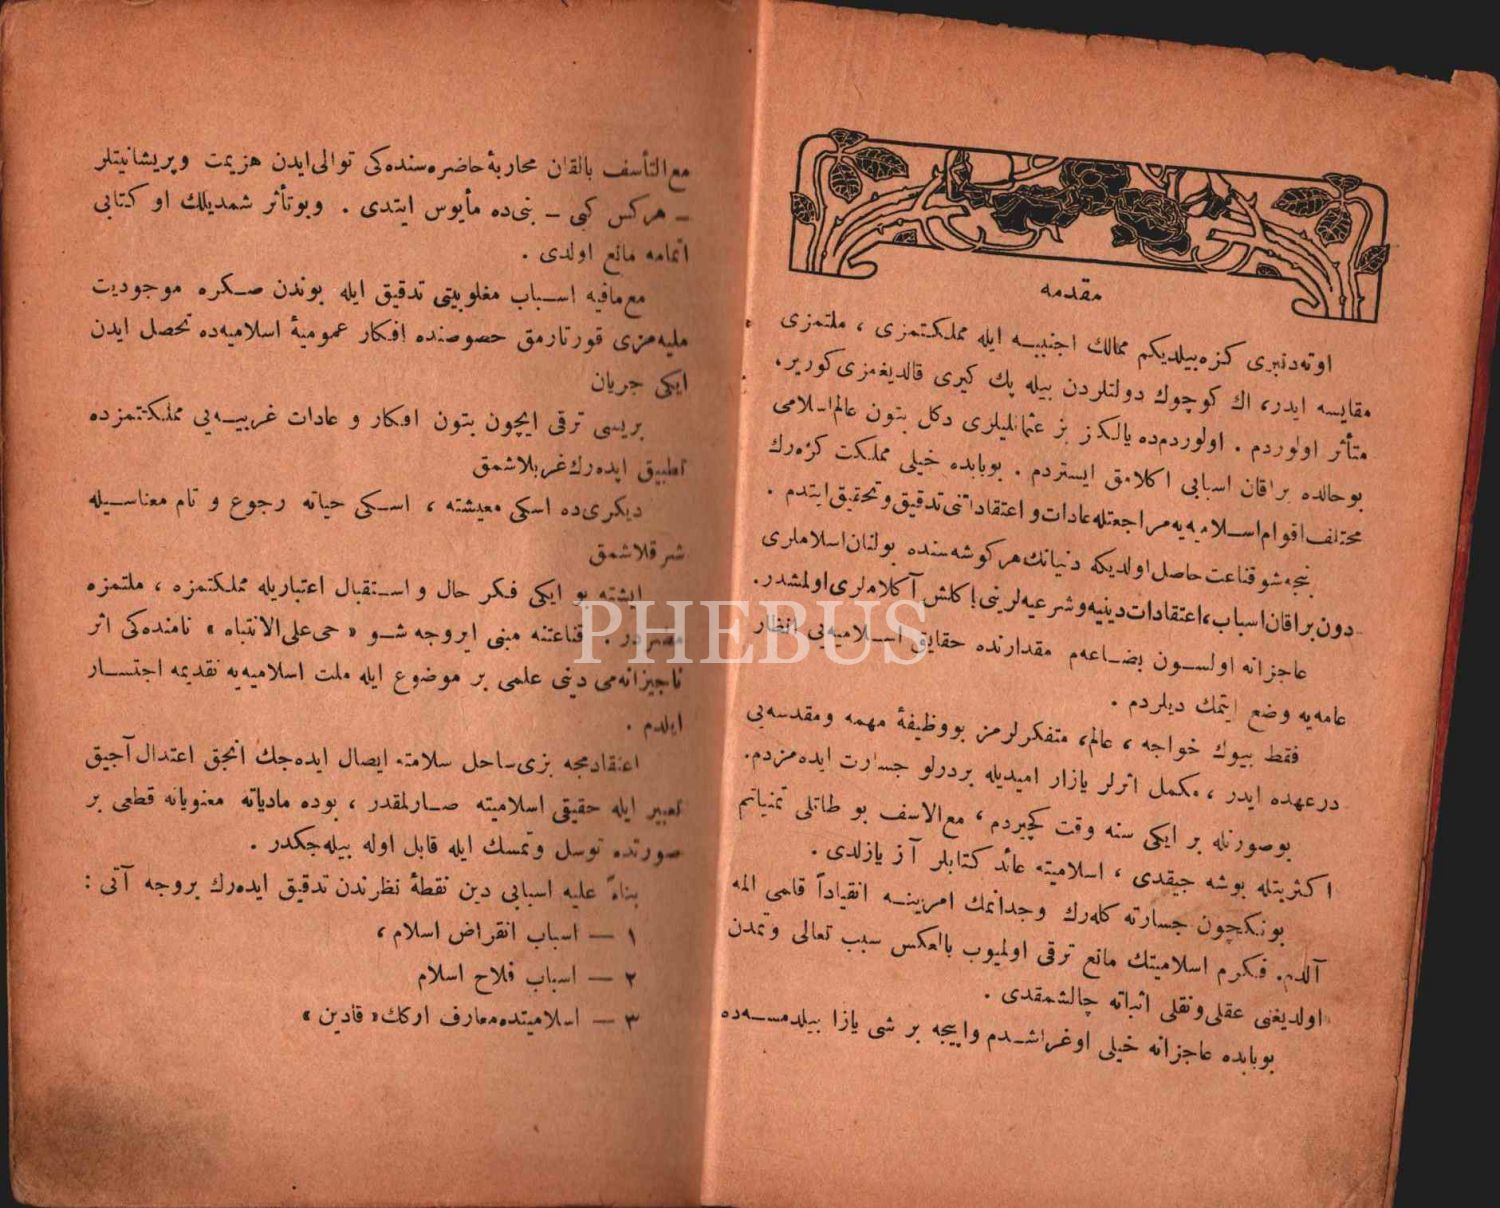 مقدمه
اوته‌دنبری كزه‌بیلدیكم ممالك اجنبیـه ایله مملكتمزی ، ملتمزی
مقایسه ایدر، اك كوچوك دولتلردن بیله پك كیری قالدیغمزی كوریر،
متأثر اولوردم . اولوردم‌ده یالكز بز عثمانلیلری دكل بتون عالم‌اسلامی
بو حالده براقان اسبابی اكلامق ایستردم . بوبابده خیلی مملكت كزه‌رك
مختلف اقوام‌اسلامیه‌یه‌مراجعتله‌عادات‌و اعتقاداتنی‌تدقیق‌وتحقیق‌ایتدم .
بنجه‌شو قناعت حاصل‌اولدیكه دنیانك‌هركوشه‌سنده بولنان‌اسلاملری
دون‌براقان‌اسباب، اعتقادات‌دینیه‌وشرعیه‌لرینی‌یاكلش‌آكلامه‌لری‌اولمشدر.
عاجزانه اولسـون بضـاعه‌م مقدارنده حقایق اسـلامیه‌یی انظار
عامه‌یه وضع ایتمك دیلردم .
فقط بیوك خواجه ، عالم، متفكرلرمز بووظیفهٔ مهمه ومقدسه‌یی
درعهده ایدر ، مكمل اثرلر یازار امیدیله بردرلو جسارت ایده‌مزدم.
بوصورتله بر ایكی سنه وقت كچیردم ، مع‌الاسف بو طاتلی تمنیاتم
اكثریتله بوشه جیقدی ، اسلامیته عائد كتابلر آز یازلدی .
بونكچون جسارته كله‌رك وجدانمك امرینـه انقیاداً قلمی المه
آلدم. فكرم اسلامیتك مانع ترقی اولمیوب بالعكس سبب تعالی وتمدن
اولدیغنی عقلی‌ونقلی اثباته چالشمقدی .
بوبابده عاجزانه خیلی اوغراشـدم واییجه بر شی یازا بیلدمسـه‌ده
مع‌التأسف بالقان محاربهٔ حاضره‌سنده‌كی توالی‌ایدن هزیمت وپریشانیتلر
ـ هركس كبی ـ بنی‌ده مأیوس ایتدی . وبوتأثر شمدیلك او كتابی
اتمامه مانع اولدی .
مع‌مافیه اسـباب مغلوبیتی تدقیق ایله بوندن صـكره موجودیت
ملیه‌مزی قورتارمق خصوصنده افكار عمومیهٔ اسلامیه‌ده تحصل ایدن
ایكی جریان
بریسی ترقی ایچون بتون افكار و عادات غربیـه‌یی مملكتمزده
تطبیق ایده‌رك غربلاشمق
دیكری‌ده اسكی معیشته ، اسـكی حیاته رجوع و تام معناسـیله
شرقلاشمق
ایشته بو ایكی فـكر حال و اسـتقبال اعتباریله مملكتمزه ، ملتمزه
مضردر . قناعتنه مبنی ایروجه شـو « حی‌علی‌الانتباه » نامنده‌كی اثر
ناچیزانه‌می دینی علمی بر موضوع ایله ملت اسلامیه‌یه تقدیمه اجتسـار
ایلدم .
اعتقادمجه بزی‌ساحل سلامته ایصال ایده‌جك انجق اعتدال آجیق
تعبیر ایله حقیقی اسلامیته صـارلمقدر ، بوده مادیاته معنویانه قطعی بر
صورتده توسل وتمسك ایله قابل اوله بیله‌جكدر .
بناءً علیه اسبابی دین نقطهٔ نظرندن تدقیق ایده‌رك بروجه آتی :
١ — اسباب انقراض اسلام ،
٢ — اسباب فلاح اسلام
٣ — اسلامیتده‌معارف ارككـ « قادین »
PHEBUS